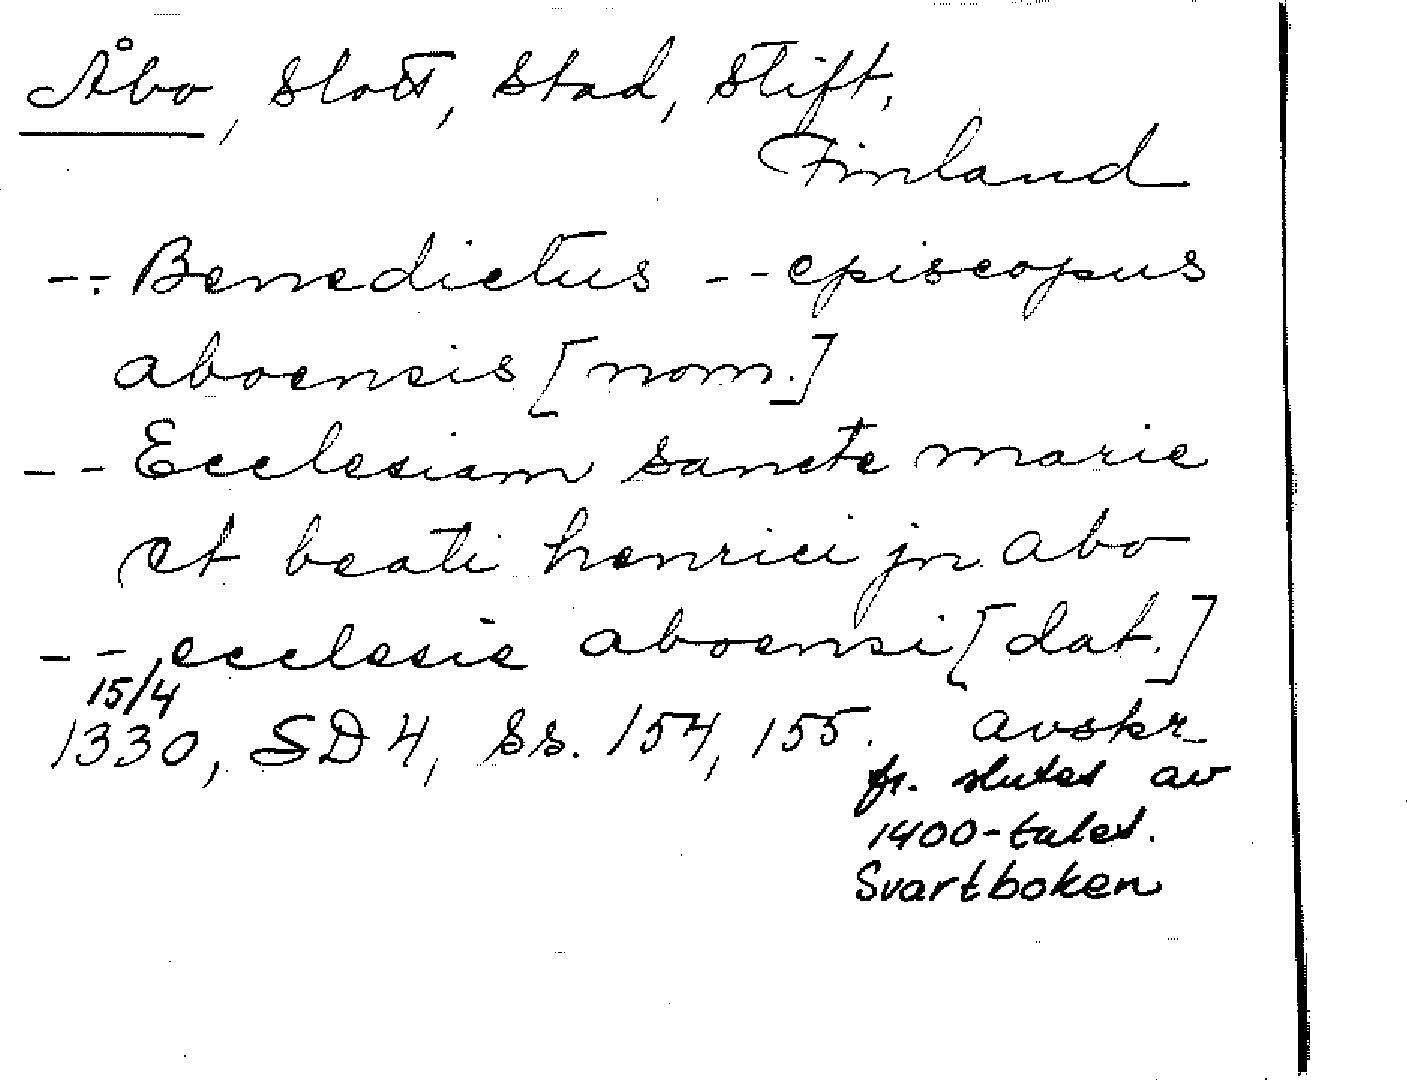 Åbo, slott, stad, stift,
Finland
-- Benedictus -- episcopus
aboensis [nom.]
-- Ecclesiam sancte marie
et beati henrici jn abo
-- ecclesie aboensi [dat.]
15/4
1330, SD 4, ss. 154, 155. avskr
fr. slutet av
1400-talet.
Svartboken